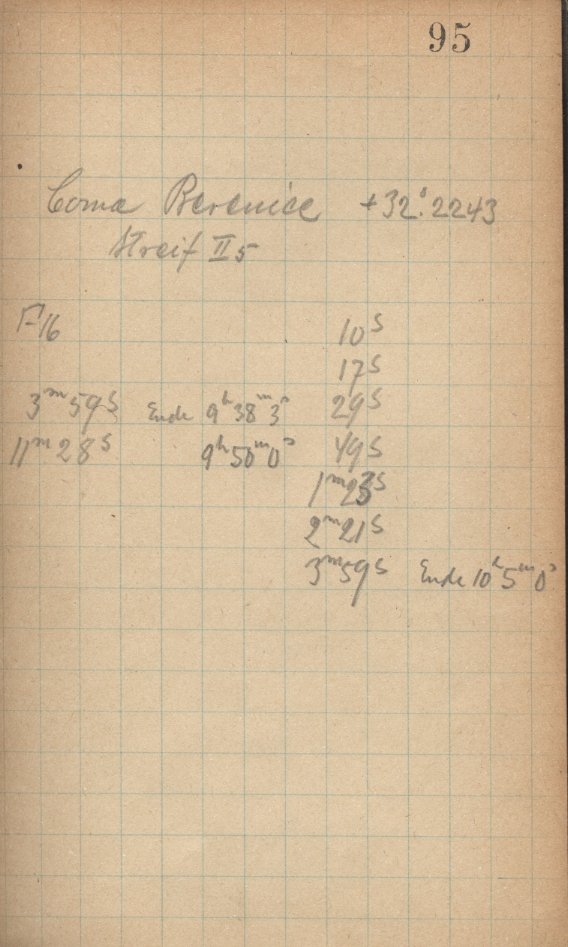 95
Coma Berenice +32°.2243
Streif II 5
F16 10s
17s
3m 59s Ende 9h 38m 3s 29s
11m 28s 9h 50m 0s 49s
1m 23s
2m 21s
3m 59s Ende 10h 5m 0s